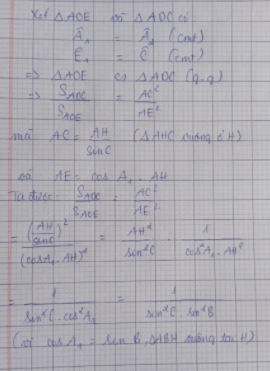 Xét ΔACE và ΔADC có
Â₁ = Â₂ (cmt)
Ê₁ = Ĉ (cmt)
=> ΔAOE ∽ ΔADC (g.g)
=> S_ADC / S_AOE = AC² / AE²
mà AC = AH / sin C (ΔAHC vuông ở H)
và AE = cos A₁ . AH
Ta được: S_ADC / S_AOE = AC² / AE²
= (AH / sin C)² / (cos A₁ . AH)² = AH² / sin² C . 1 / cos² A₁ . AH²
= 1 / sin² C . cos² A₁ = 1 / sin² C sin² B
(vì cos A₁ = sin B, ΔABH vuông tại H)